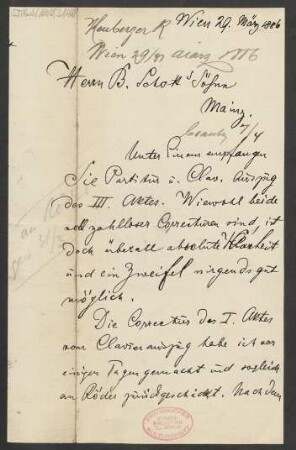 Heuberger R Wien 29. März 1886
Wien 29/III März 1886
Herrn B. Schott's Söhne
Mainz.
Unter Einem empfangen
Sie Partitur u. Clav. Auszug
des III. Aktes. Wiewohl beide
voll zahlloser Correcturen sind, ist
doch überall absolute Klarheit
und ein Zweifel nirgends gut
möglich.
Die Correctur des I. Aktes
vom Clavierauszug habe ich vor
einigen Tagen gemacht und sogleich
an Röder zurückgeschickt. Nachdem